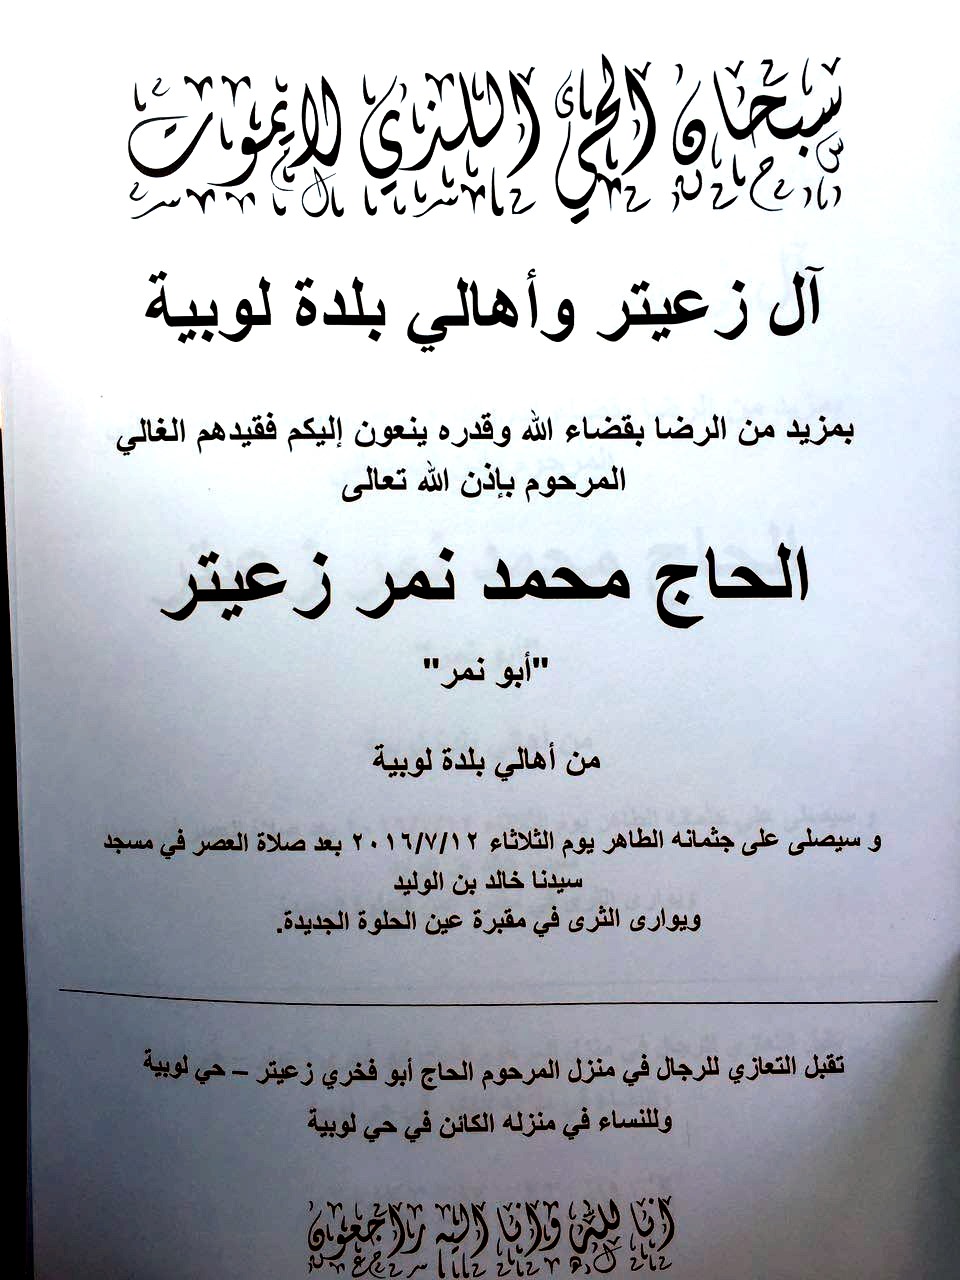 سبحان الحي اللذي لا يموت
آل زعيتر وأهالي بلدة لوبية
بمزيد من الرضا بقضاء الله وقدره ينعون إليكم فقيدهم الغالي
المرحوم بإذن الله تعالى
الحاج محمد نمر زعيتر
"أبو نمر"
من أهالي بلدة لوبية
و سيصلى على جثمانه الطاهر يوم الثلاثاء ٢٠١٦/٧/١٢ بعد صلاة العصر في مسجد
سيدنا خالد بن الوليد
ويوارى الثرى في مقبرة عين الحلوة الجديدة.
تقبل التعازي للرجال في منزل المرحوم الحاج أبو فخري زعيتر – حي لوبية
وللنساء في منزله الكائن في حي لوبية
انا لله وانا اليه راجعون